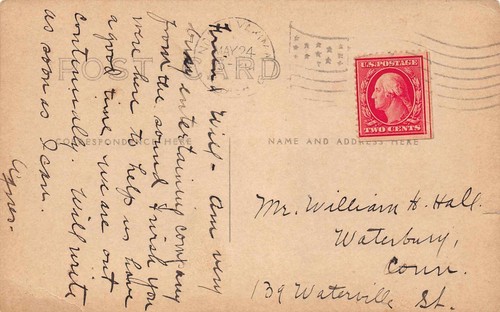 MAY 24
POST CARD
U.S. POSTAGE
TWO CENTS
CORRESPONDENCE HERE
NAME AND ADDRESS HERE
Friend Will - Am very
busy entertaining company
from the sound & wish you
were here to help us have
a good time. We are out
continually. Will write
as soon as I can.
Agnes.
Mr. William H. Hall.
Waterbury,
Conn.
139 Waterville St.